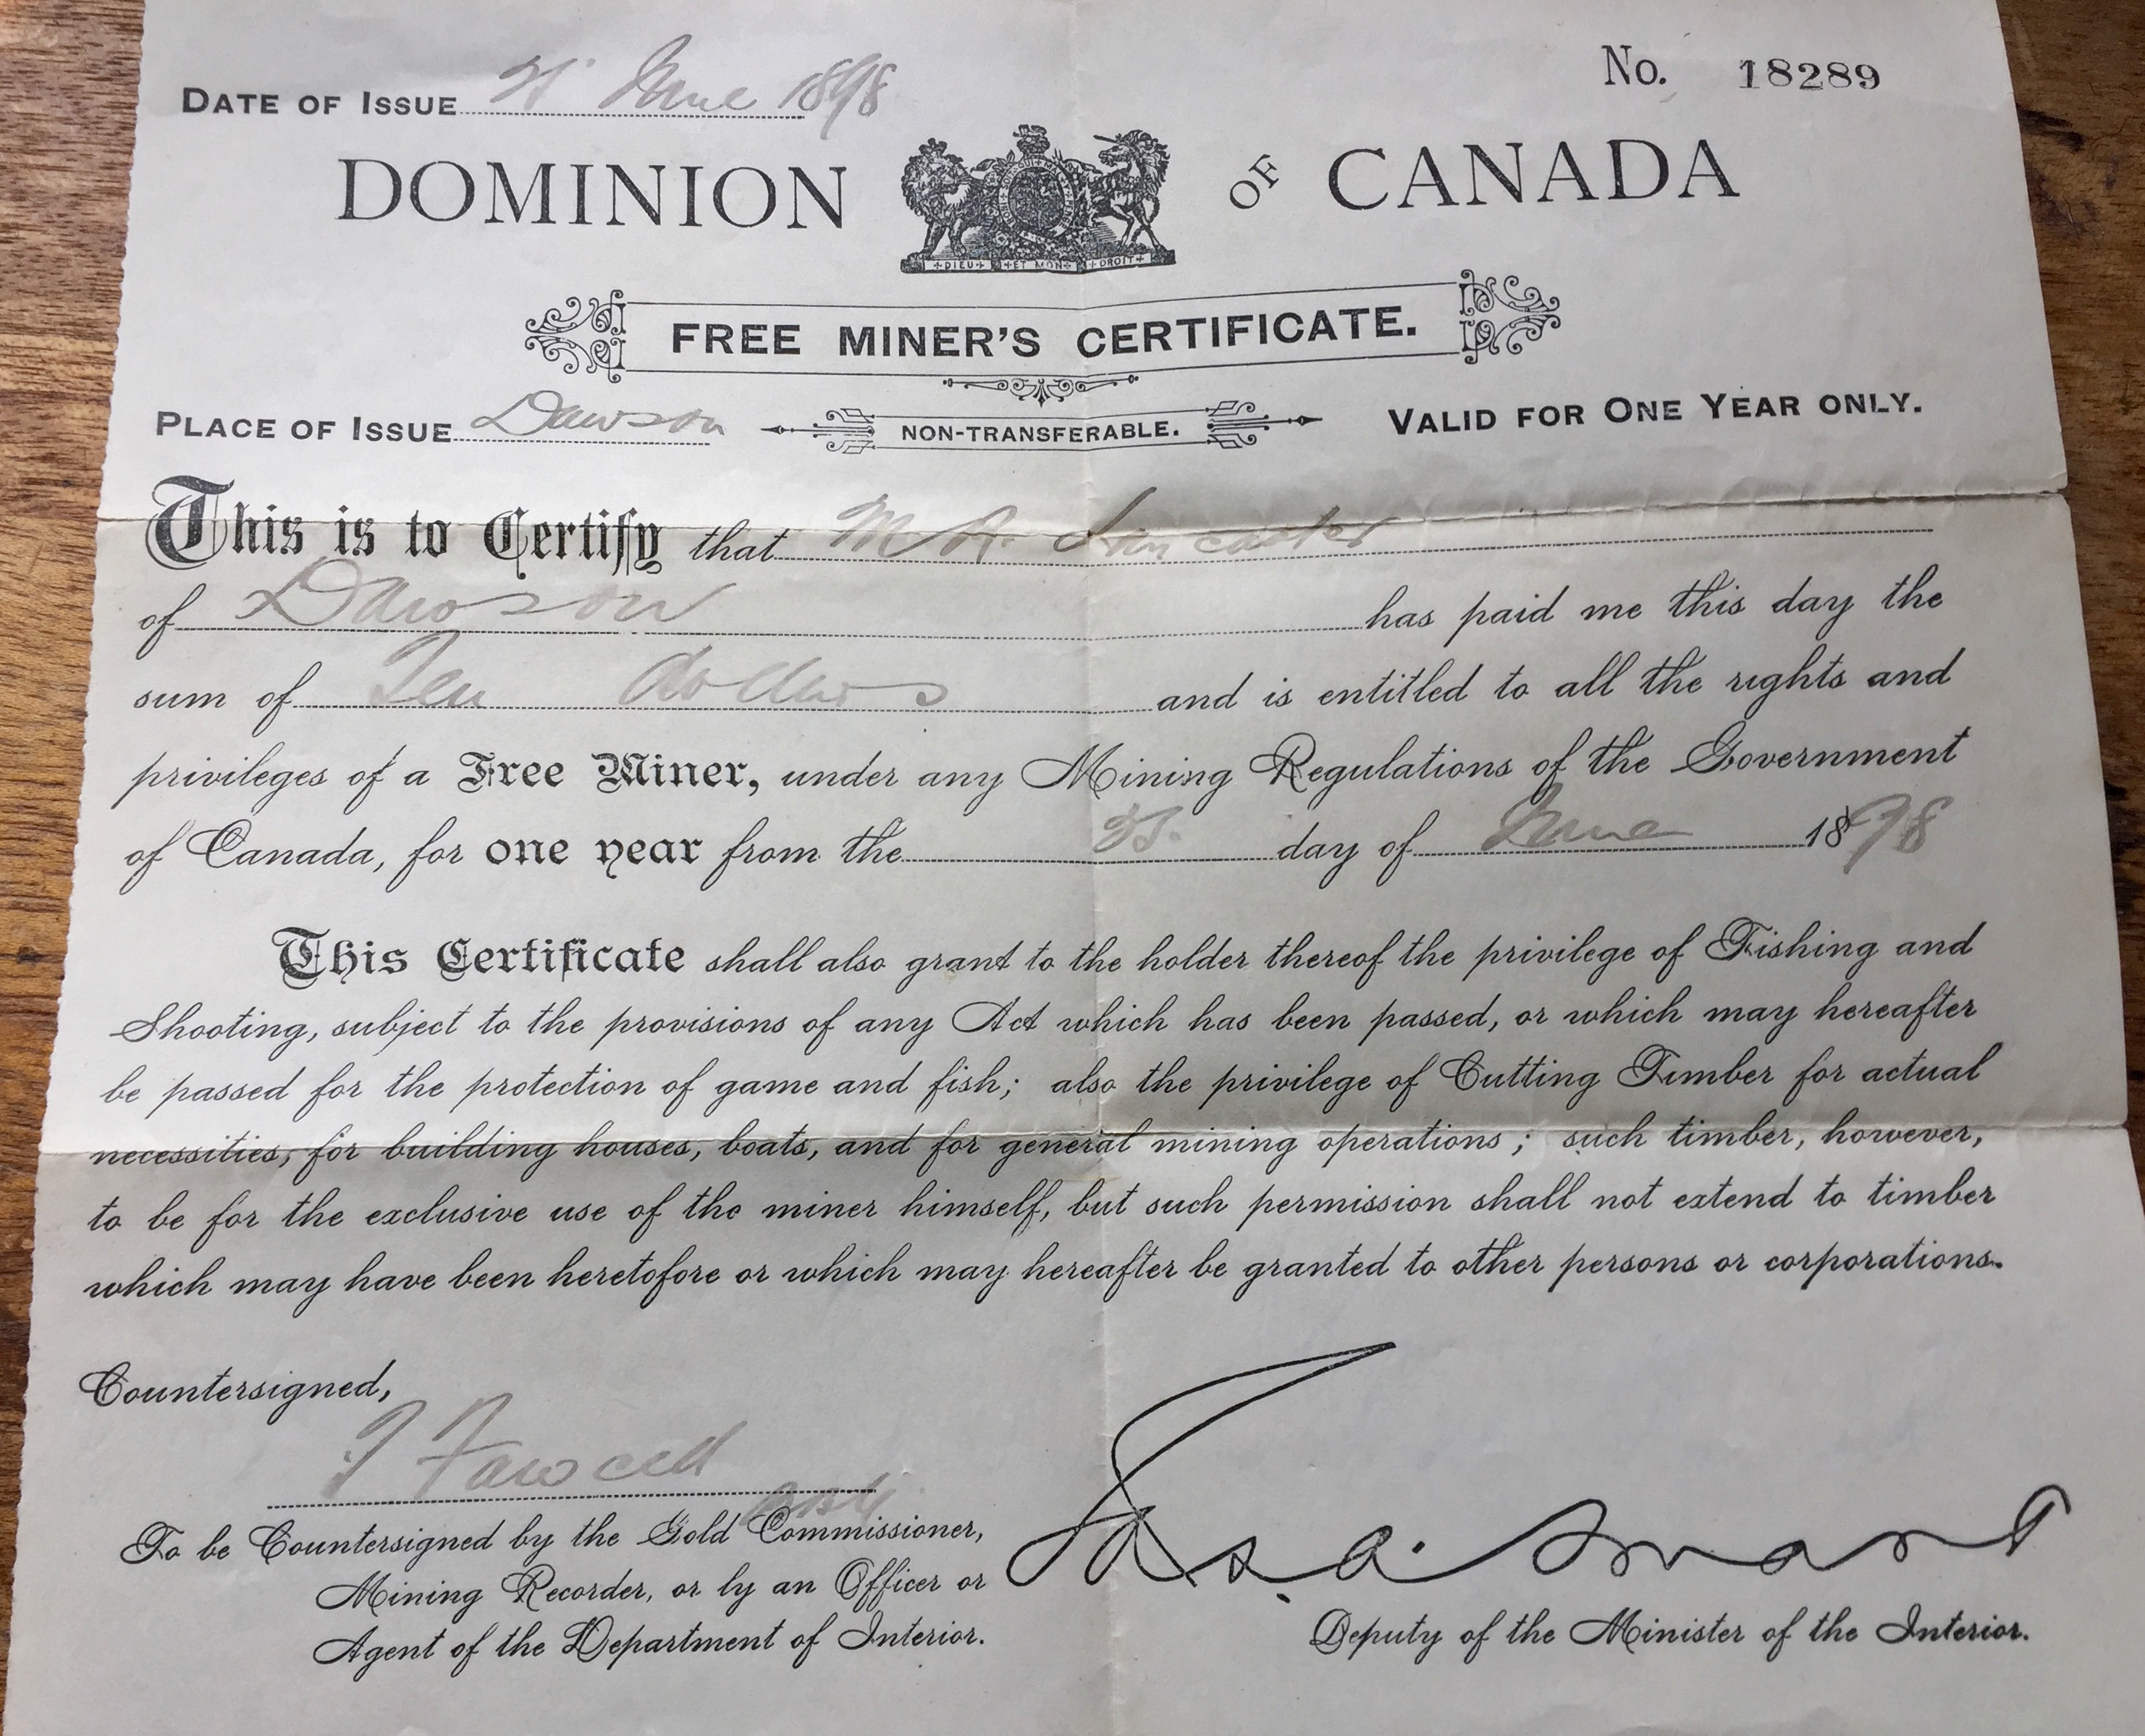 DATE OF ISSUE June 1898 No. 18289
DOMINION OF CANADA
DIEU ET MON DROIT
FREE MINER'S CERTIFICATE.
PLACE OF ISSUE Dawson NON-TRANSFERABLE. VALID FOR ONE YEAR ONLY.
This is to Certify that M A. Lancaster
of Dawson has paid me this day the
sum of Ten dollars and is entitled to all the rights and
privileges of a Free Miner, under any Mining Regulations of the Government
of Canada, for one year from the day of June 1898
This Certificate shall also grant to the holder thereof the privilege of Fishing and
Shooting, subject to the provisions of any Act which has been passed, or which may hereafter
be passed for the protection of game and fish; also the privilege of Cutting Timber for actual
necessities, for building houses, boats, and for general mining operations; such timber, however,
to be for the exclusive use of the miner himself, but such permission shall not extend to timber
which may have been heretofore or which may hereafter be granted to other persons or corporations.
Countersigned,
T Fawcett
Jas. A. Smart
To be Countersigned by the Gold Commissioner,
Mining Recorder, or by an Officer or
Agent of the Department of Interior.
Deputy of the Minister of the Interior.